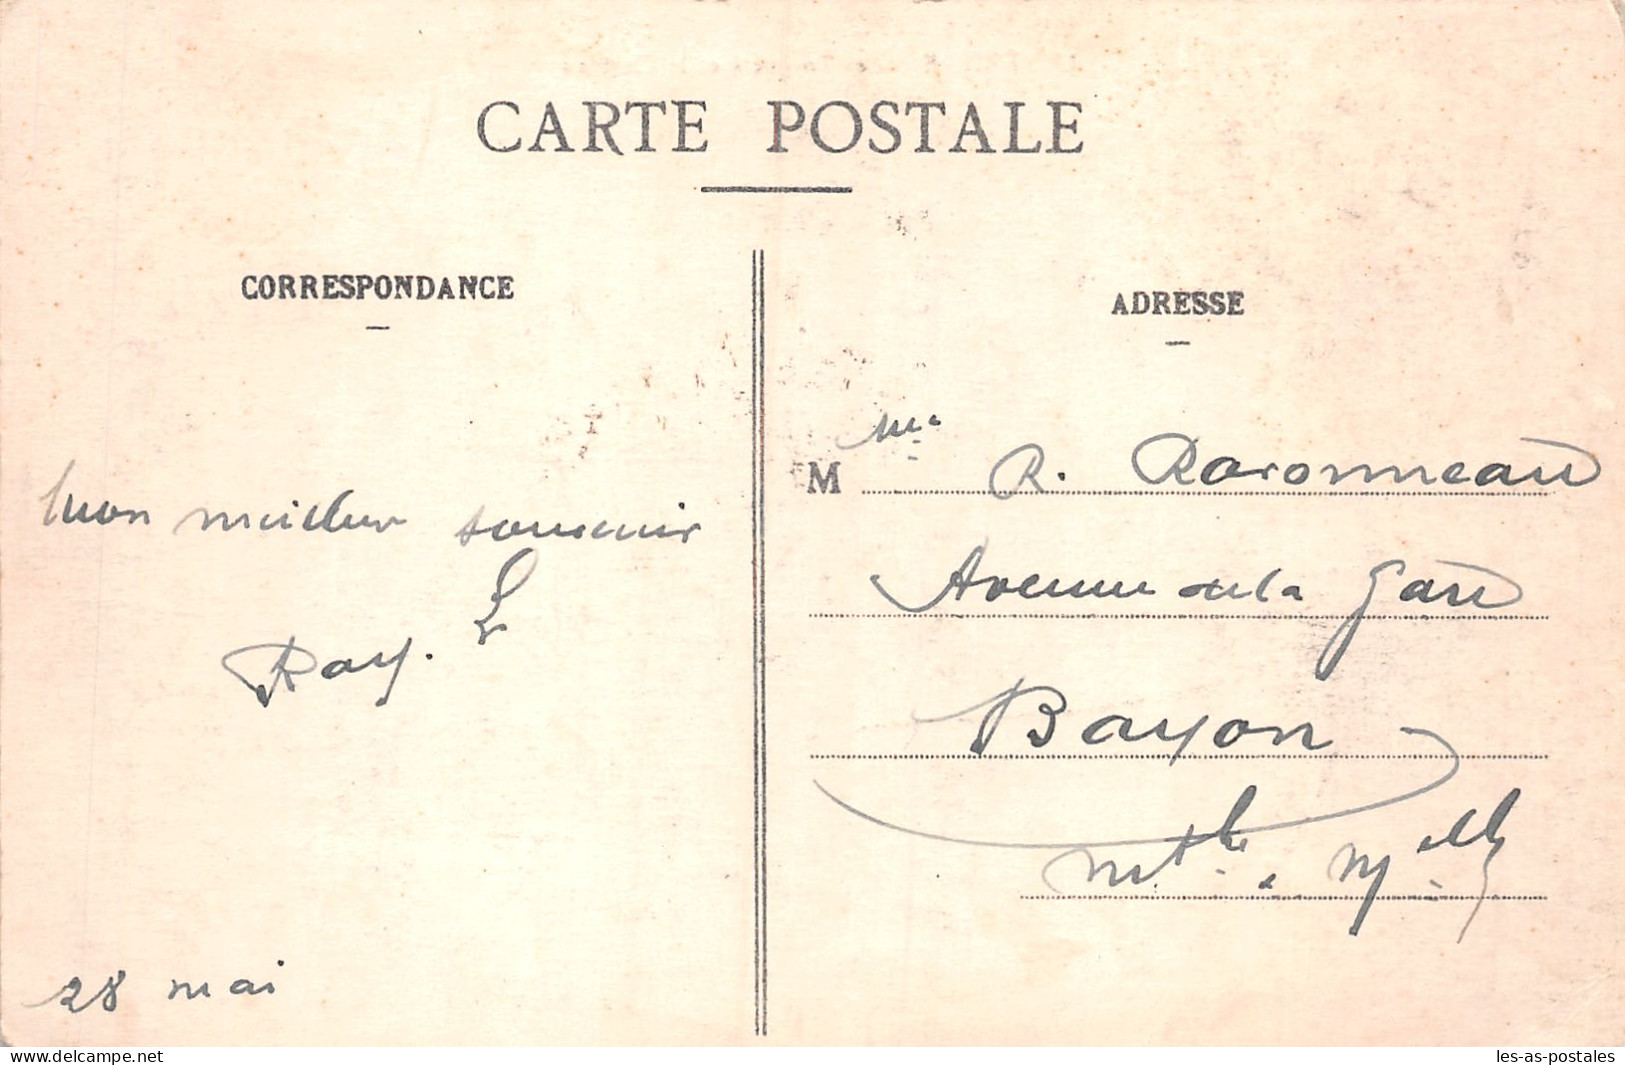 CARTE POSTALE
CORRESPONDANCE
Mon meilleur souvenir
Ray. L
28 mai
ADRESSE
M me R. Raronneau
Avenue de la Gare
Bayon
Mthe. Mlle
delcampe.net
les-as-postales